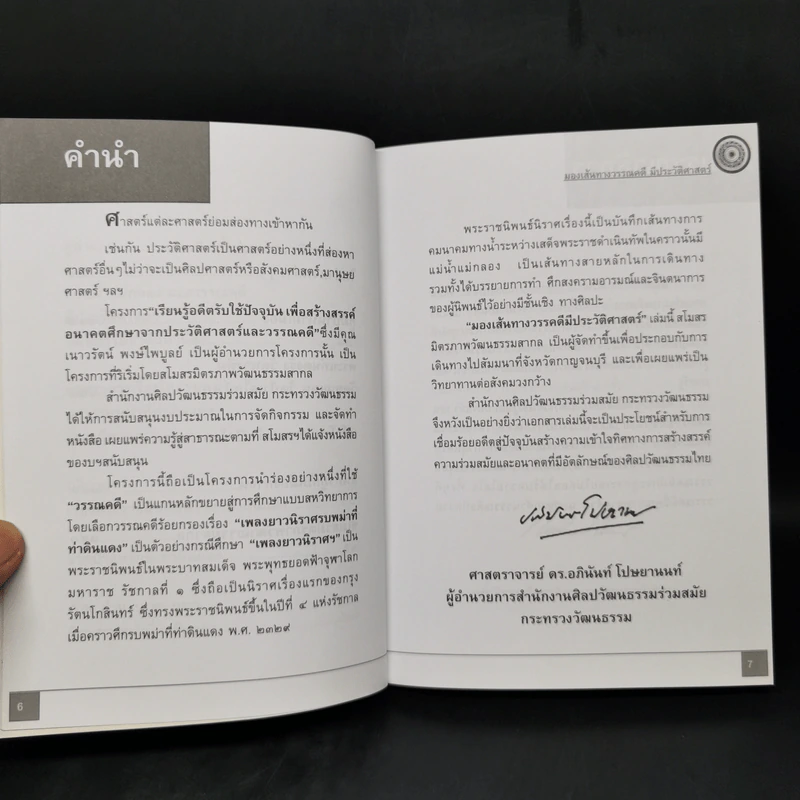 คำนำ
ศาสตร์แต่ละศาสตร์ย่อมส่องทางเข้าหากัน
เช่นกัน ประวัติศาสตร์เป็นศาสตร์อย่างหนึ่งที่ส่องหา
ศาสตร์อื่นๆไม่ว่าจะเป็นศิลปศาสตร์หรือสังคมศาสตร์,มานุษย
ศาสตร์ ฯลฯ
โครงการ"เรียนรู้อดีตรับใช้ปัจจุบัน เพื่อสร้างสรรค์
อนาคตศึกษาจากประวัติศาสตร์และวรรณคดี"ซึ่งมีคุณ
เนาวรัตน์ พงษ์ไพบูลย์ เป็นผู้อำนวยการโครงการนั้น เป็น
โครงการที่ริเริ่มโดยสโมสรมิตรภาพวัฒนธรรมสากล
สำนักงานศิลปวัฒนธรรมร่วมสมัย กระทรวงวัฒนธรรม
ได้ให้การสนับสนุนงบประมาณในการจัดกิจกรรม และจัดทำ
หนังสือ เผยแพร่ความรู้สู่สาธารณะตามที่ สโมสรฯได้แจ้งหนังสือ
ของบฯสนับสนุน
โครงการนี้ถือเป็นโครงการนำร่องอย่างหนึ่งที่ใช้
"วรรณคดี" เป็นแกนหลักขยายสู่การศึกษาแบบสหวิทยาการ
โดยเลือกวรรณคดีร้อยกรองเรื่อง "เพลงยาวนิราศรบพม่าที่
ท่าดินแดง" เป็นตัวอย่างกรณีศึกษา "เพลงยาวนิราศฯ" เป็น
พระราชนิพนธ์ในพระบาทสมเด็จ พระพุทธยอดฟ้าจุฬาโลก
มหาราช รัชกาลที่ ๑ ซึ่งถือเป็นนิราศเรื่องแรกของกรุง
รัตนโกสินทร์ ซึ่งทรงพระราชนิพนธ์ขึ้นในปีที่ ๔ แห่งรัชกาล
เมื่อคราวศึกรบพม่าที่ท่าดินแดง พ.ศ. ๒๓๒๙
6
มองเส้นทางวรรณคดี มีประวัติศาสตร์
พระราชนิพนธ์นิราศเรื่องนี้เป็นบันทึกเส้นทางการ
คมนาคมทางน้ำระหว่างเสด็จพระราชดำเนินทัพในคราวนั้นมี
แม่น้ำแม่กลอง เป็นเส้นทางสายหลักในการเดินทาง
รวมทั้งได้บรรยายการทำ ศึกสงครามอารมณ์และจินตนาการ
ของผู้นิพนธ์ไว้อย่างมีชั้นเชิง ทางศิลปะ
"มองเส้นทางวรรคดีมีประวัติศาสตร์" เล่มนี้ สโมสร
มิตรภาพวัฒนธรรมสากล เป็นผู้จัดทำขึ้นเพื่อประกอบกับการ
เดินทางไปสัมมนาที่จังหวัดกาญจนบุรี และเพื่อเผยแพร่เป็น
วิทยาทานต่อสังคมวงกว้าง
สำนักงานศิลปวัฒนธรรมร่วมสมัย กระทรวงวัฒนธรรม
จึงหวังเป็นอย่างยิ่งว่าเอกสารเล่มนี้จะเป็นประโยชน์สำหรับการ
เชื่อมร้อยอดีตสู่ปัจจุบันสร้างความเข้าใจทิศทางการสร้างสรรค์
ความร่วมสมัยและอนาคตที่มีอัตลักษณ์ของศิลปวัฒนธรรมไทย
ศาสตราจารย์ ดร.อภินันท์ โปษยานนท์
ผู้อำนวยการสำนักงานศิลปวัฒนธรรมร่วมสมัย
กระทรวงวัฒนธรรม
7